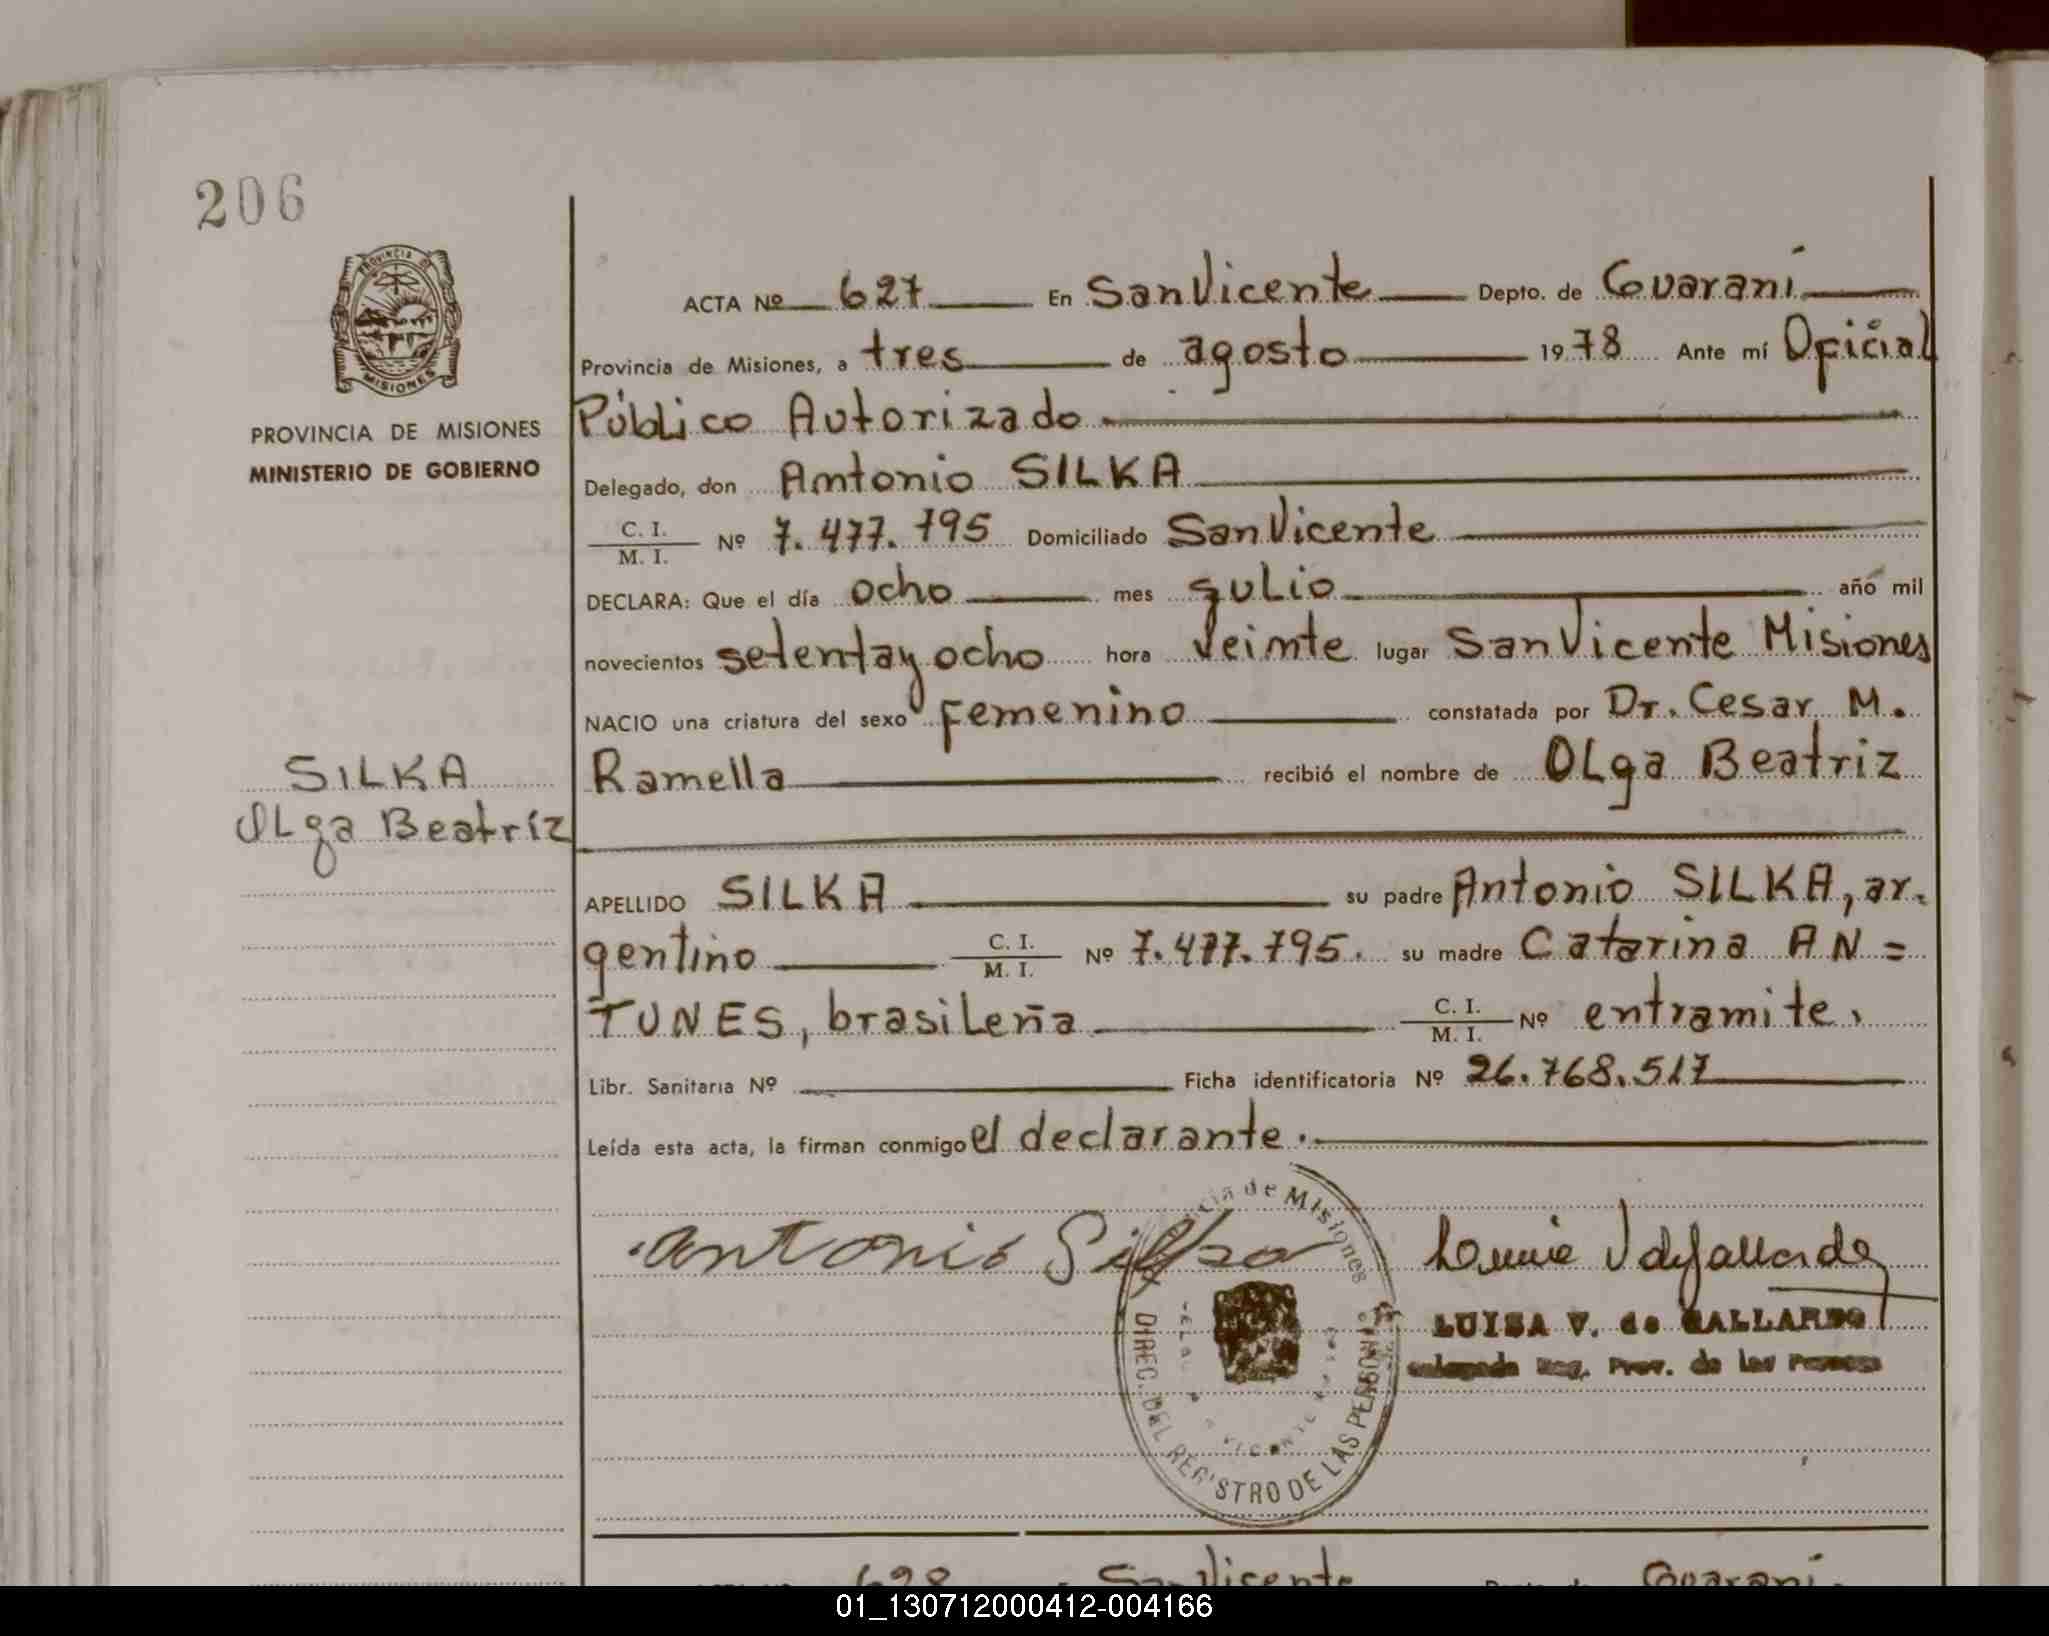 206
PROVINCIA DE
MISIONES
PROVINCIA DE MISIONES
MINISTERIO DE GOBIERNO
SILKA
Olga Beatríz
ACTA Nº 627 En San Vicente Depto. de Guaraní
Provincia de Misiones, a tres de agosto 1978 Ante mí Oficial
Público Autorizado
Delegado, don Antonio SILKA
C. I.
M. I. Nº 7.477.795 Domiciliado San Vicente
DECLARA: Que el día ocho mes julio año mil
novecientos setentay ocho hora veinte lugar San Vicente Misiones
NACIO una criatura del sexo femenino constatada por Dr. Cesar M.
Ramella recibió el nombre de Olga Beatriz
APELLIDO SILKA su padre Antonio SILKA, ar.
gentino C. I.
M. I. Nº 7.477.795. su madre Catarina AN=
TUNES, brasileña C. I.
M. I. Nº entramite.
Libr. Sanitaria Nº Ficha identificatoria Nº 26.768.517
Leída esta acta, la firman conmigo el declarante.
Antonio Silka
de Misiones
DIREC. DEL REGISTRO DE LAS PERSONAS
LUISA V. de GALLARDO
Delegada Reg. Prov. de las Personas
628 San Vicente Guaraní
01_130712000412-004166